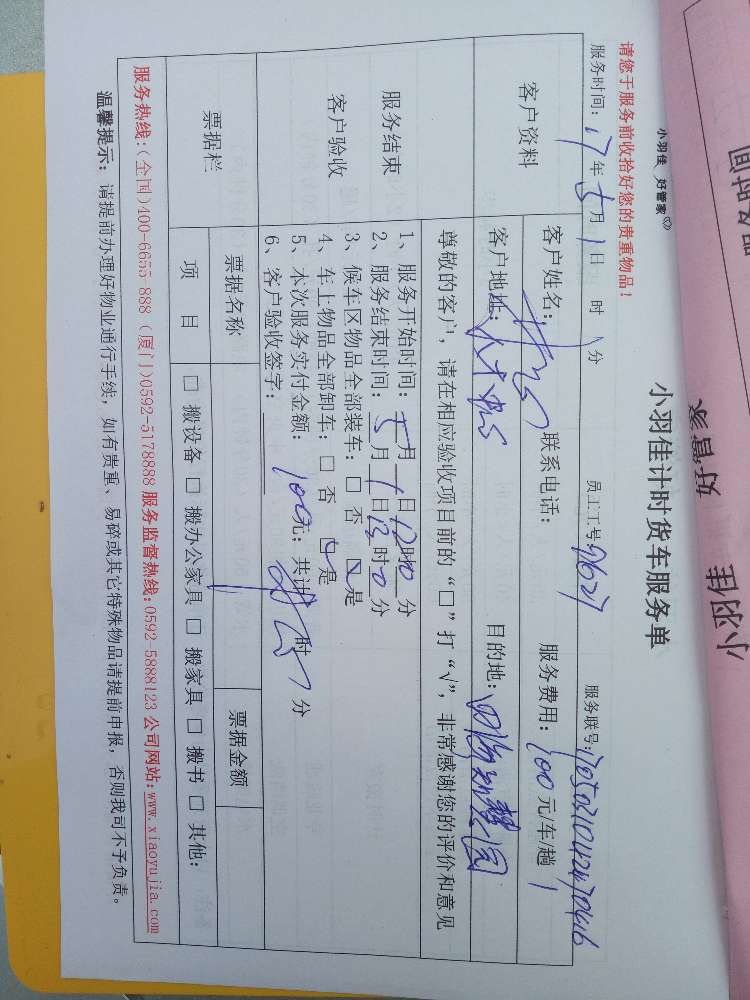 小羽佳 好管家
小羽佳计时货车服务单
请您于服务前收拾好您的贵重物品！
服务时间：17年5月1日 时 分 员工工号 9627 服务联号：
客户资料 客户姓名： 联系电话： 服务费用：100元/车/趟
客户地址： 目的地：
尊敬的客户，请在相应验收项目前的“□”打“√”，非常感谢您的评价和意见
服务结束
客户验收
1、服务开始时间：5月1日12时 分
2、服务结束时间：5月1日 时0分
3、候车区物品全部装车：□ 否 ☑ 是
4、车上物品全部卸车：□ 否 ☑ 是
5、本次服务实付金额：100元；共计 时 分
6、客户验收签字：
票据栏 票据名称 票据金额
项 目 □ 搬设备 □ 搬办公家具 □ 搬家具 □ 搬书 □ 其他：
服务热线：(全国)400-6655 888 (厦门)0592-5178888 服务监督热线：0592-5888123 公司网站：www.xiaoyujia.com
温馨提示：请提前办理好物业通行手续，如有贵重、易碎或其它特殊物品请提前申报，否则我司不予负责。
小羽佳
好管家